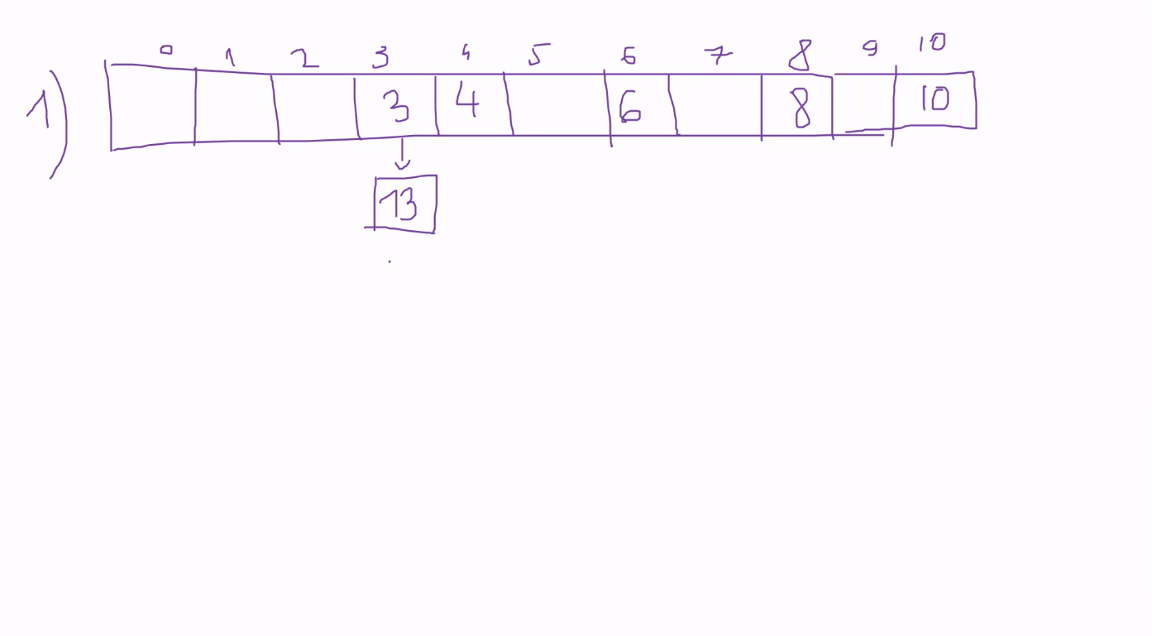 0 1 2 3 4 5 6 7 8 9 10
1) 3 4 6 8 10
13